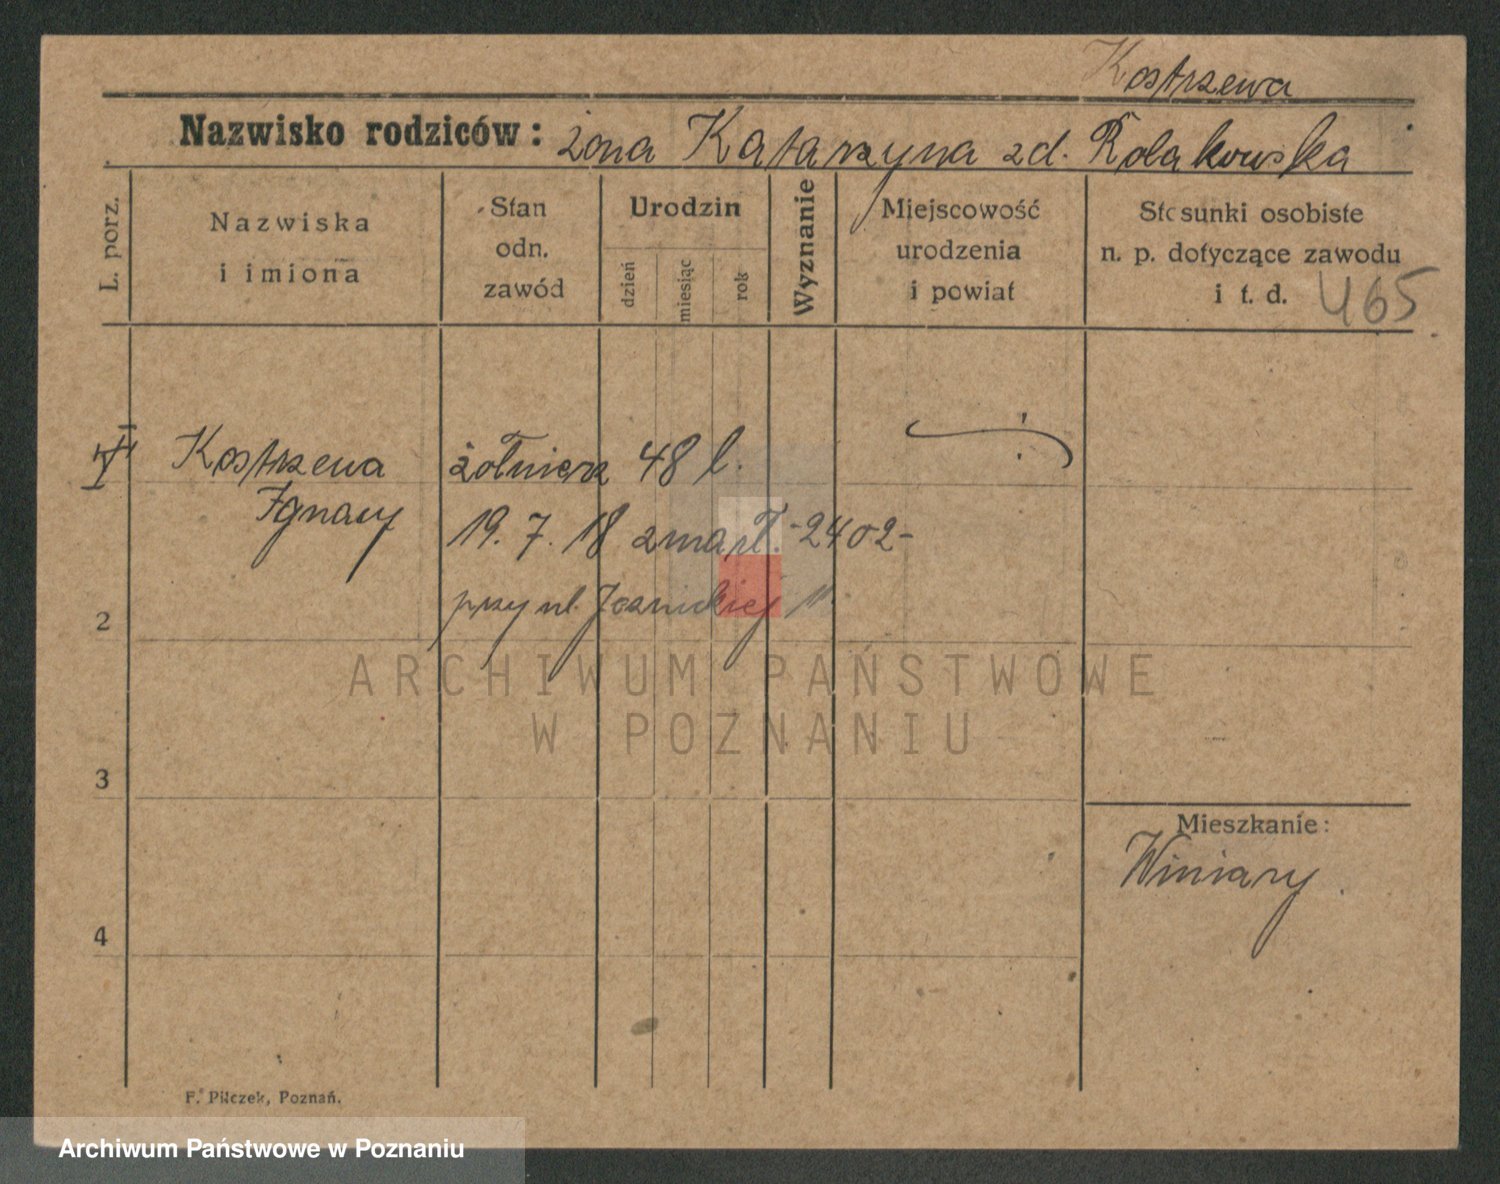 Kostrzewa
Nazwisko rodziców: żona Katarzyna zd. Kołakowska
L. porz.
Nazwiska
i imiona
Stan
odn.
zawód
Urodzin
dzień
miesiąc
rok
Wyznanie
Miejscowość
urodzenia
i powiat
Stosunki osobiste
n. p. dotyczące zawodu
i t. d.
465
Kostrzewa żołnierz 48 l.
Ignacy 19. 7. 18 zmarł. -2402-
przy ul.
2
ARCHIWUM PAŃSTWOWE
W POZNANIU
3
Mieszkanie:
Winiary
4
F. Pilczek, Poznań.
Archiwum Państwowe w Poznaniu